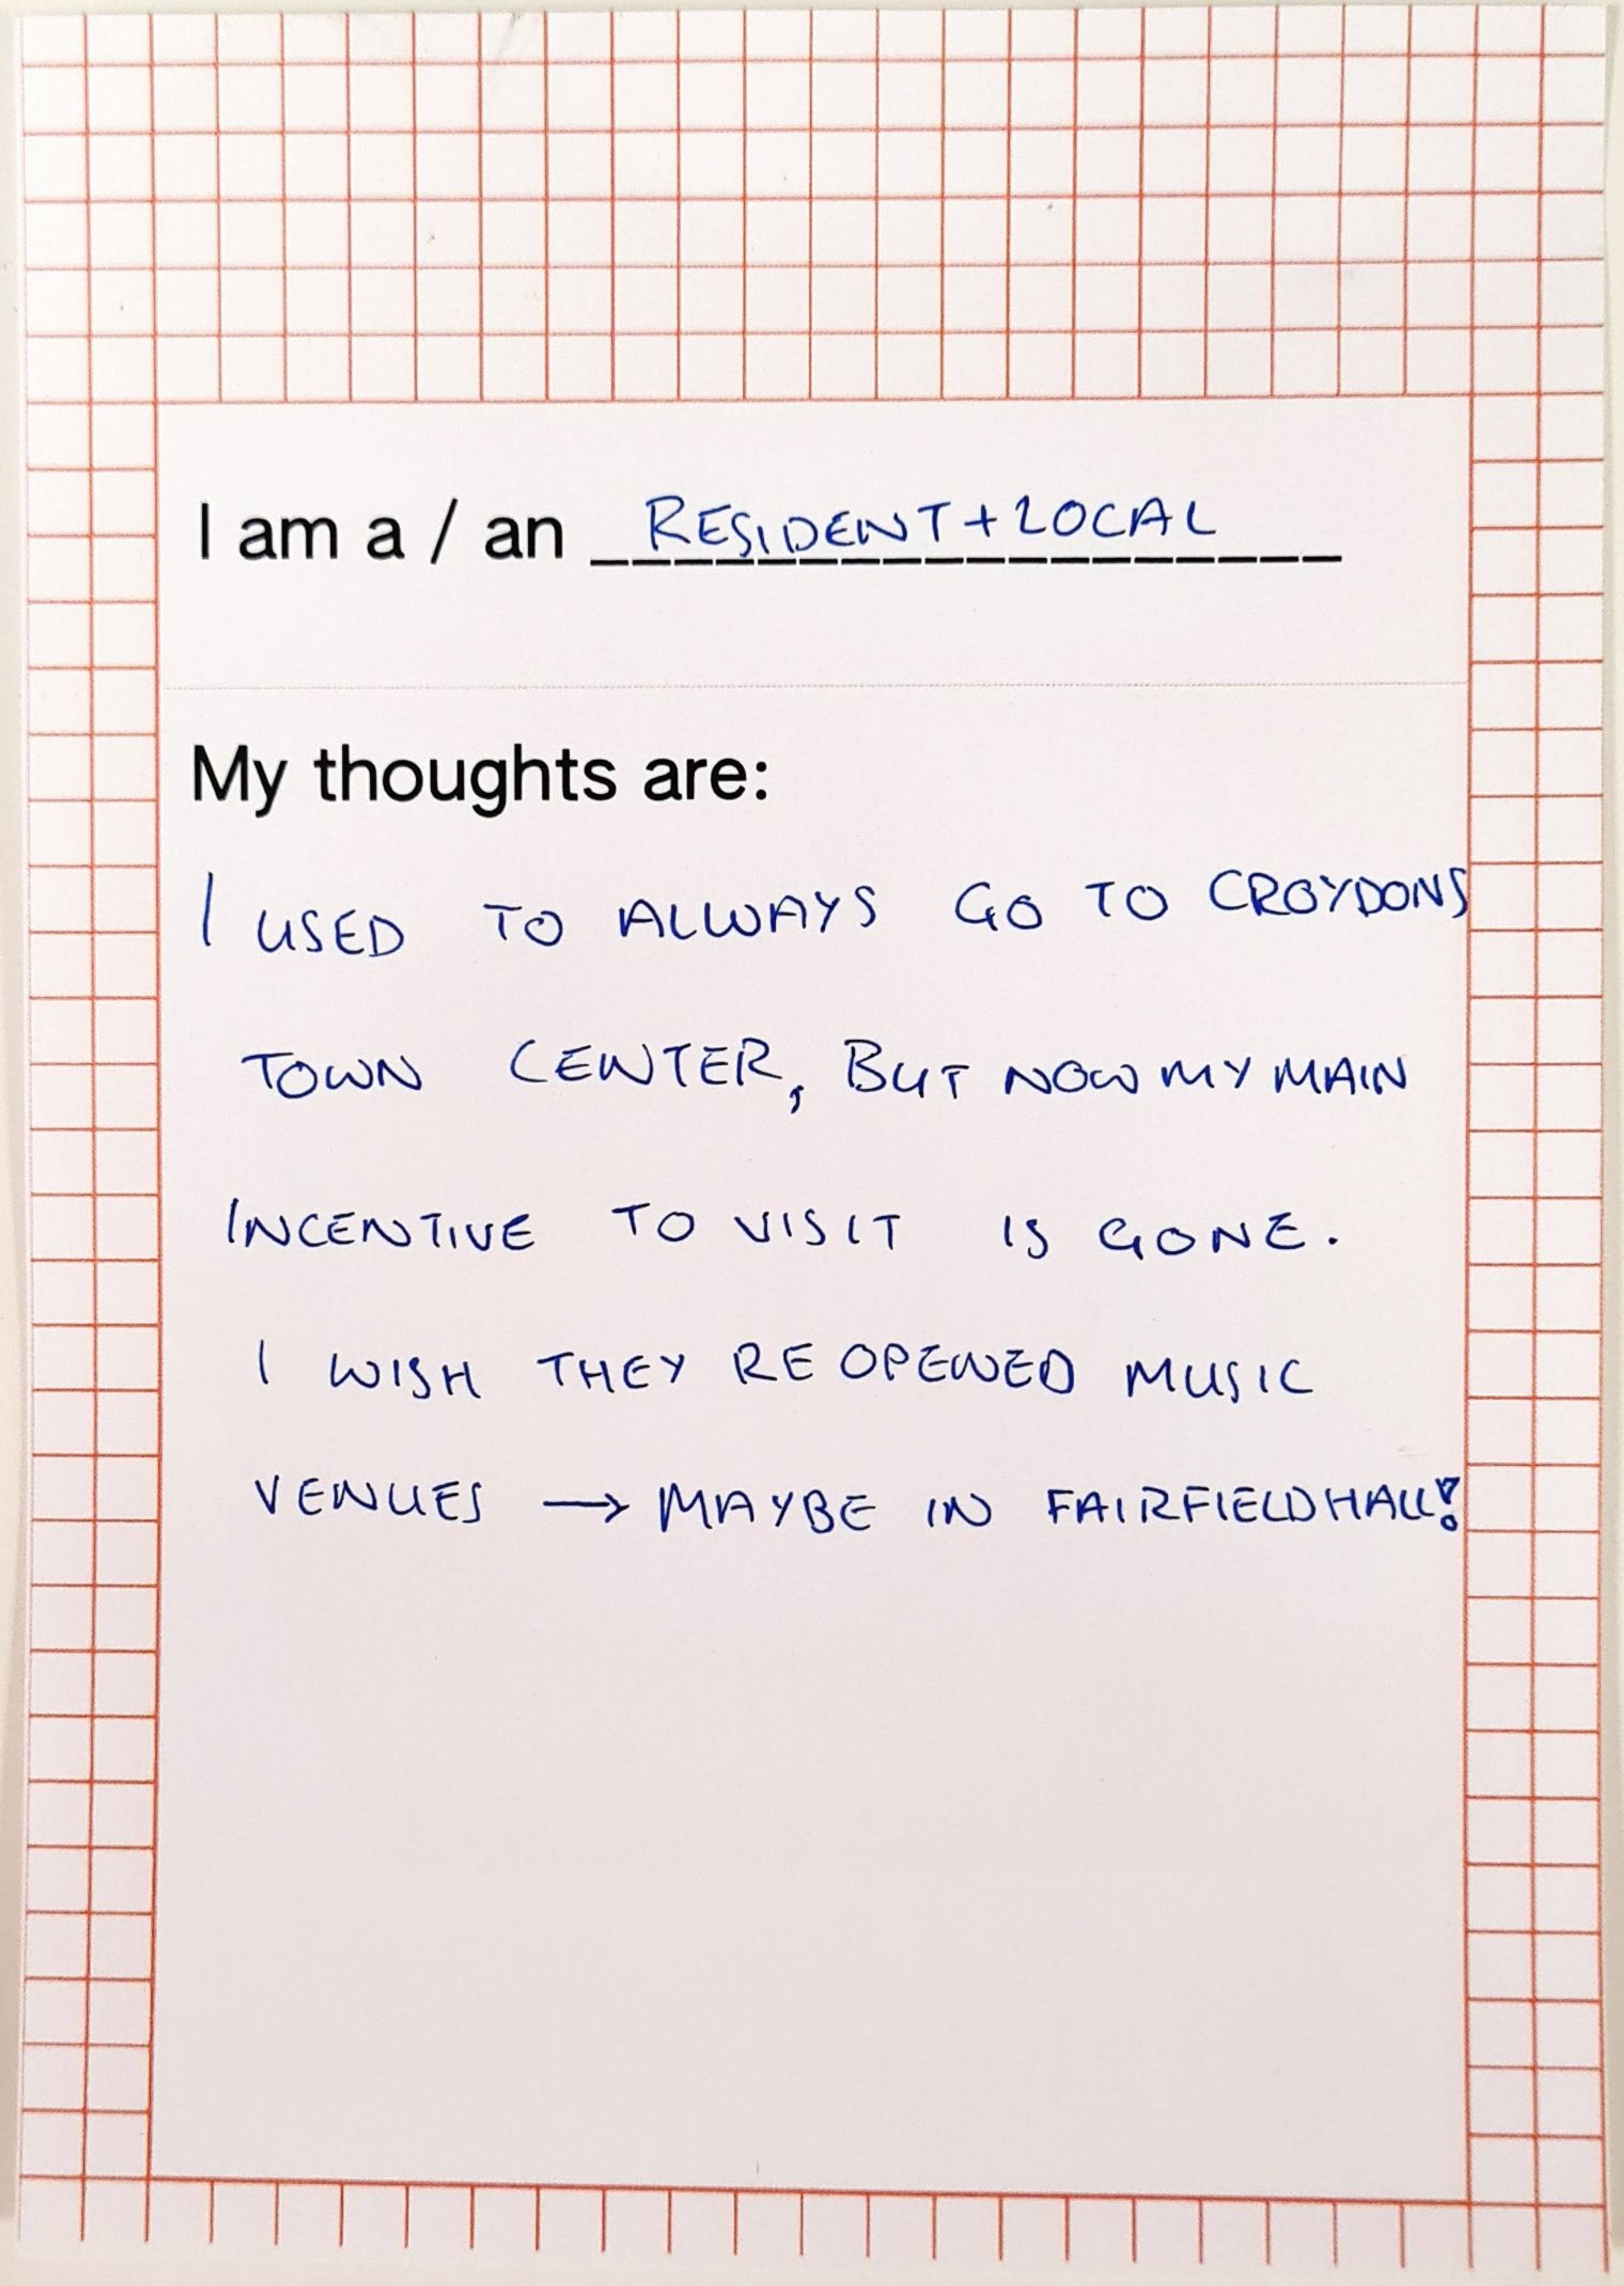 I am a / an RESIDENT + LOCAL
My thoughts are:
I USED TO ALWAYS GO TO CROYDONS
TOWN CENTER, BUT NOW MY MAIN
INCENTIVE TO VISIT IS GONE.
I WISH THEY RE OPENED MUSIC
VENUES → MAYBE IN FAIRFIELD HALL!